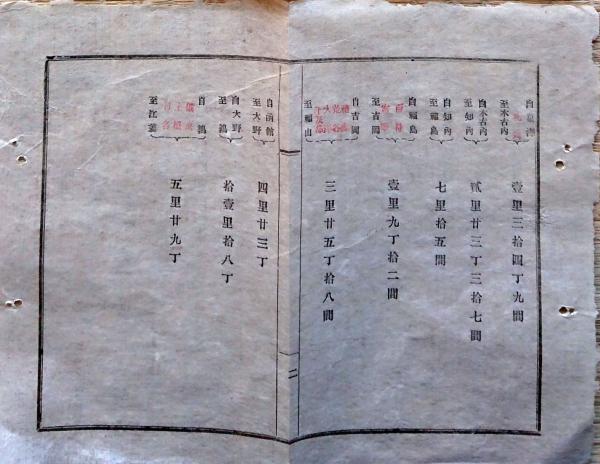 自泉澤
至木古内
壹里三拾四丁九間
自木古内
至知内
貳里廿三丁三拾七間
自知内
至福島
七里拾五間
自福島
至吉岡
壹里九丁拾二間
自吉岡
至福山
三里廿五丁拾八間
二
自函館
至大野
四里廿三丁
自大野
至鶉
拾壹里拾八丁
自鶉
至江差
五里廿九丁